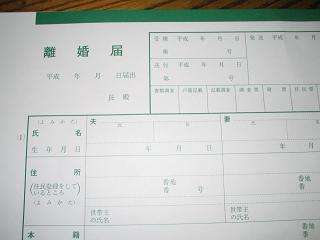 離婚届
平成 年 月 日届出
長 殿
受理 平成 年 月 日
第 号
発送 平成 年
送付 平成 年 月 日
第 号
書類調査 戸籍記載 記載調査 調査票 附票 住民票
(よみかた)
氏名
夫
氏 名
妻
氏 名
生年月日
年 月 日
年 月
住所
(住民登録をして
いるところ)
(よみかた)
番地
番 号
番地
番
世帯主
の氏名
世帯主
の氏名
本籍
番地